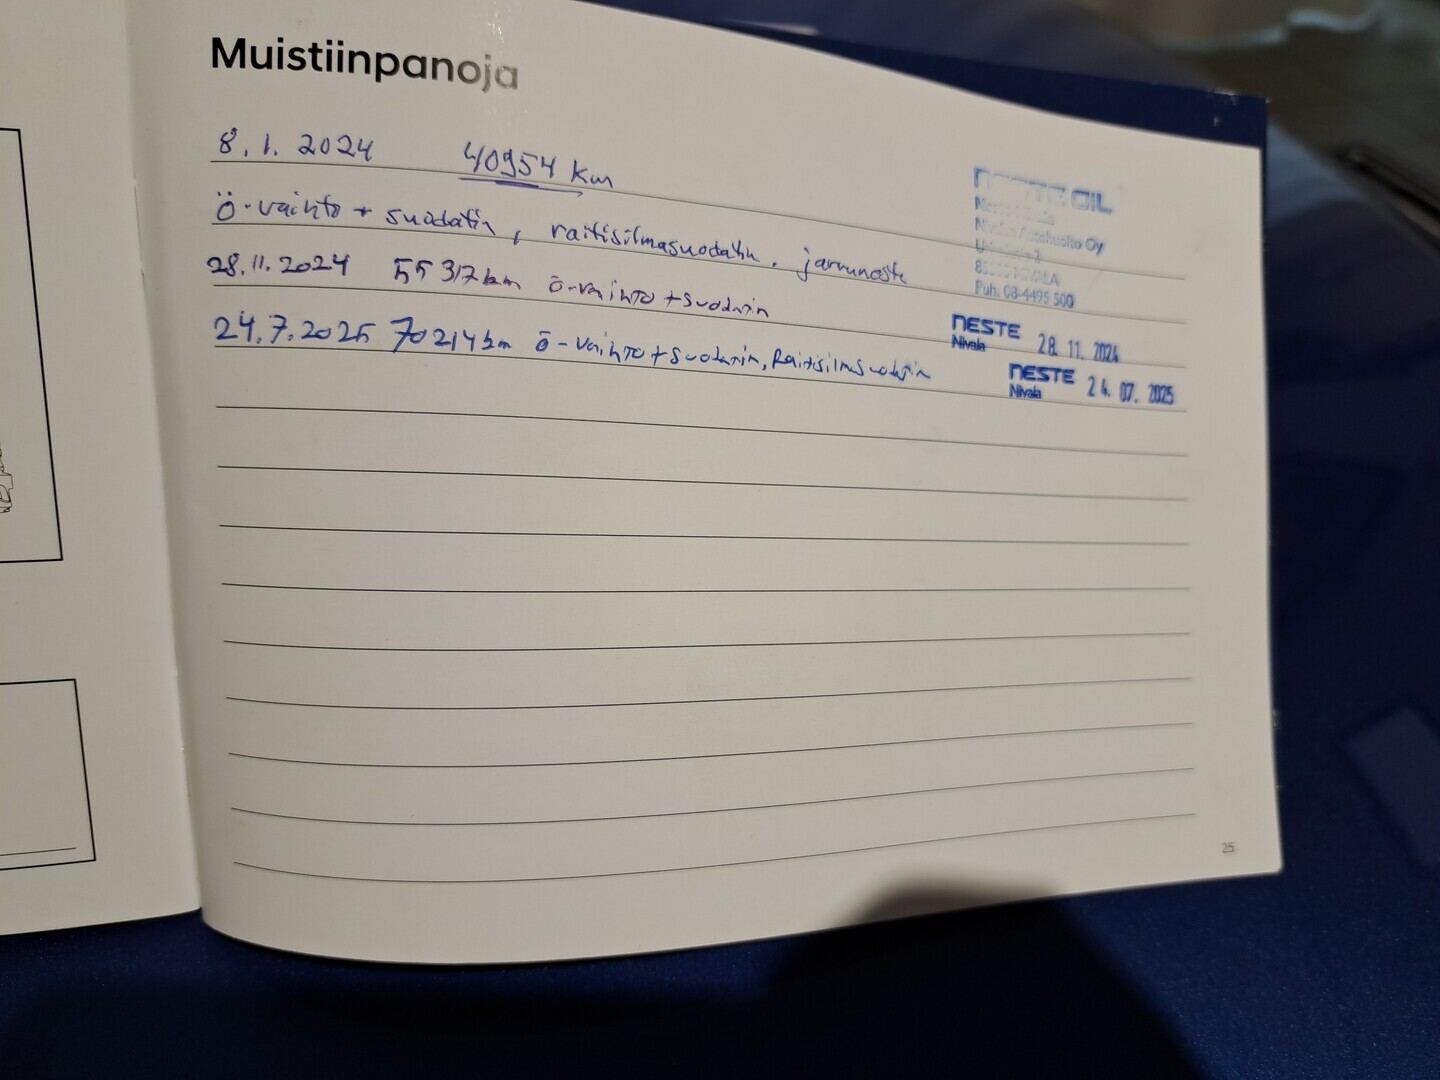 Muistiinpanoja
8.1. 2024 40954 km
ö-vaihto + suodatin, raitisilmasuodatin, jarruneste
NESTE OIL
Nivalan Autohuolto Oy
NIVALA
Puh. 08-4495 500
28.11.2024 55 317 km ö-vaihto + suodatin
NESTE
Nivala 28. 11. 2024
24.7.2025 70214 km ö-vaihto + suodatin, Raitisilmasuodatin
NESTE
Nivala 24. 07. 2025
25